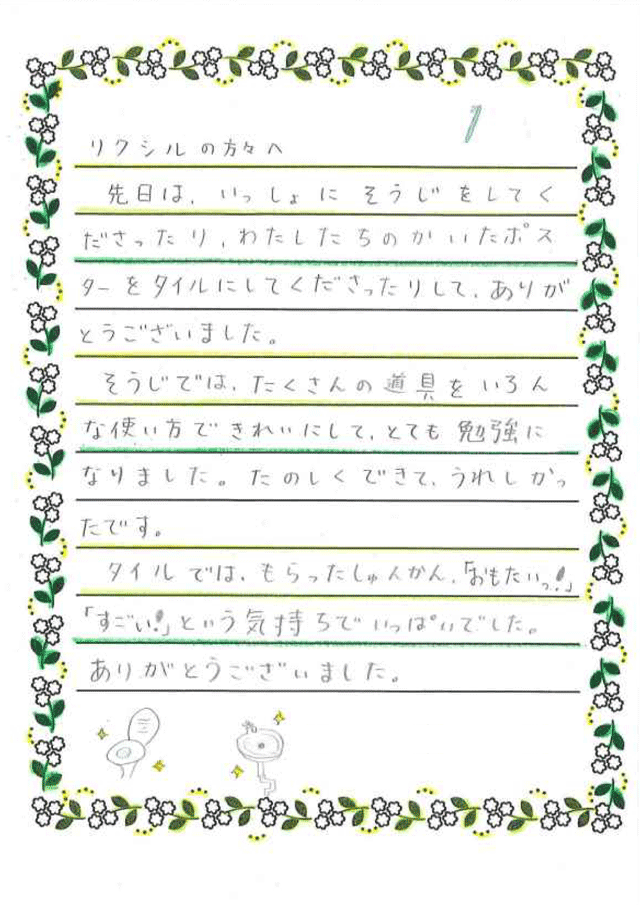 リクシルの方々へ
先日は、いっしょにそうじをしてく
ださったり、わたしたちのかいたポス
ターをタイルにしてくださったりして、ありが
とうございました。
そうじでは、たくさんの道具をいろん
な使い方できれいにして、とても勉強に
なりました。たのしくできて、うれしかっ
たです。
タイルでは、もらったしゅんかん、「おもたいっ!」
「すごい!」という気持ちでいっぱいでした。
ありがとうございました。